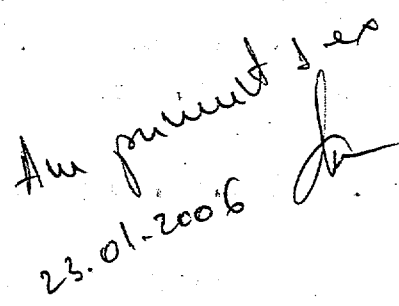 Am primit 1 ex
23.01-2006